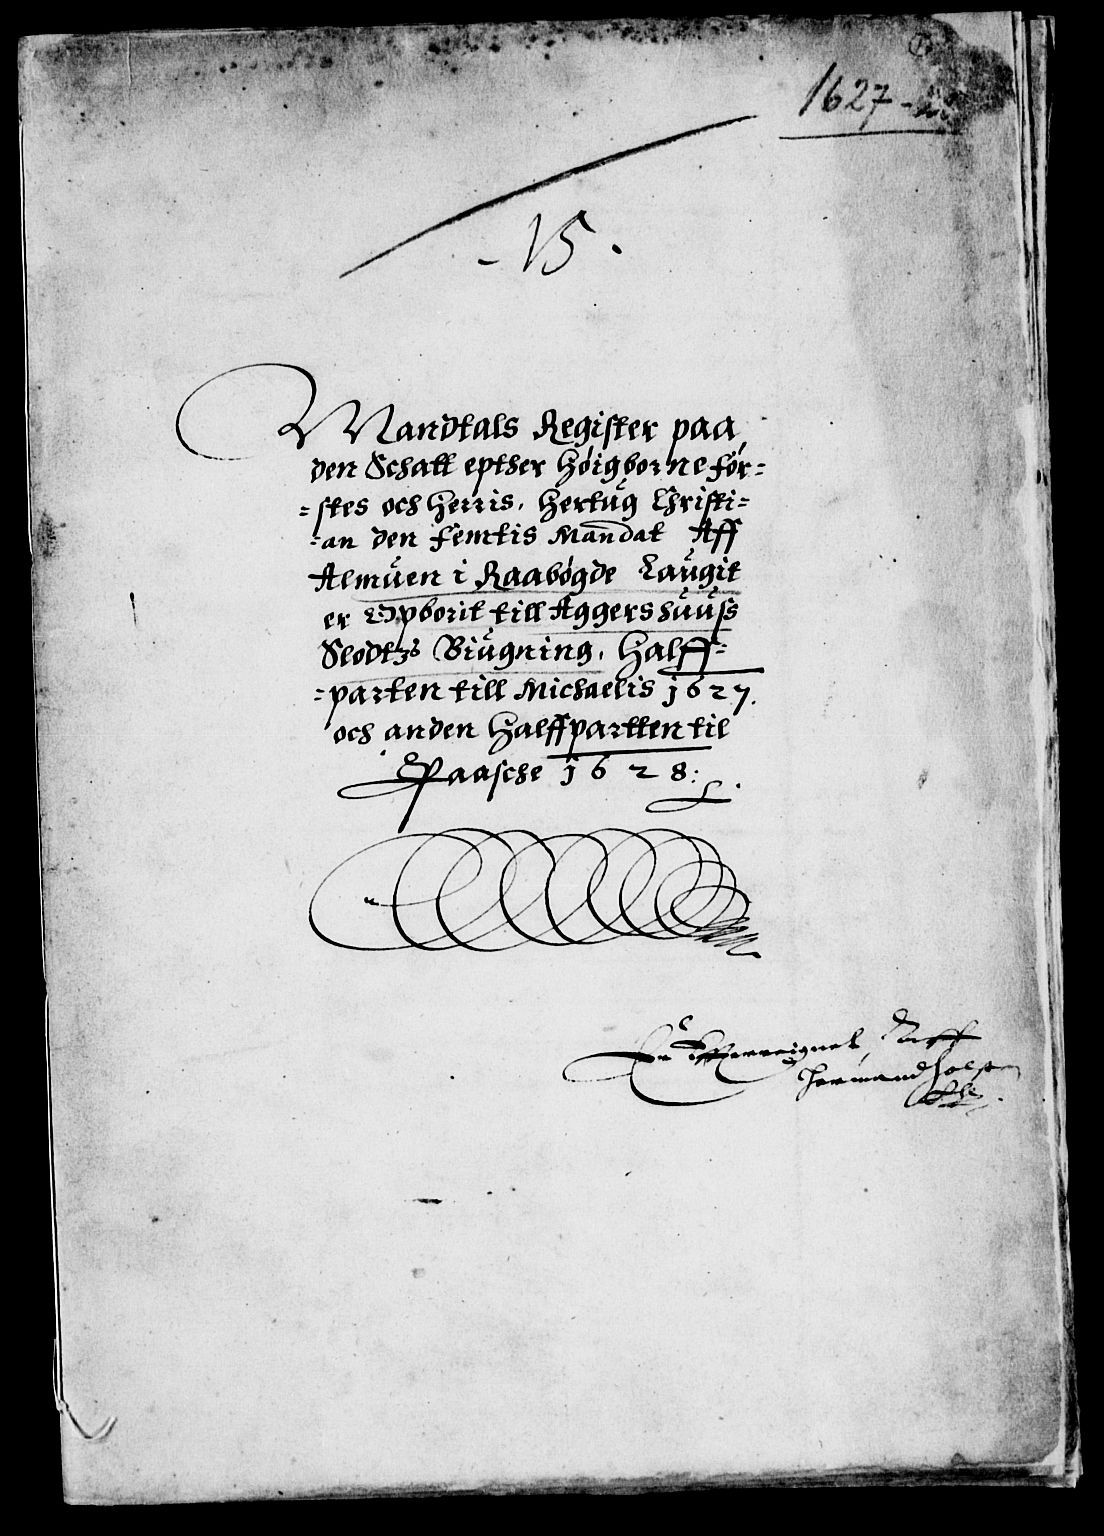 1627-28
- 15 .
Mandtals Register paa
den Schatt epther Høigborne før-
-stes och Herris, Hertŭg Christi-
-an den femtis Mandat Aff
Almŭen i Raabøgde Laŭgit
er Opborit till Aggershŭŭss
Slodtzs Biŭgning, Halff-
-parten till Michaelis 1627.
och anden Halffpartten til
Paasche 1628:
Hermand